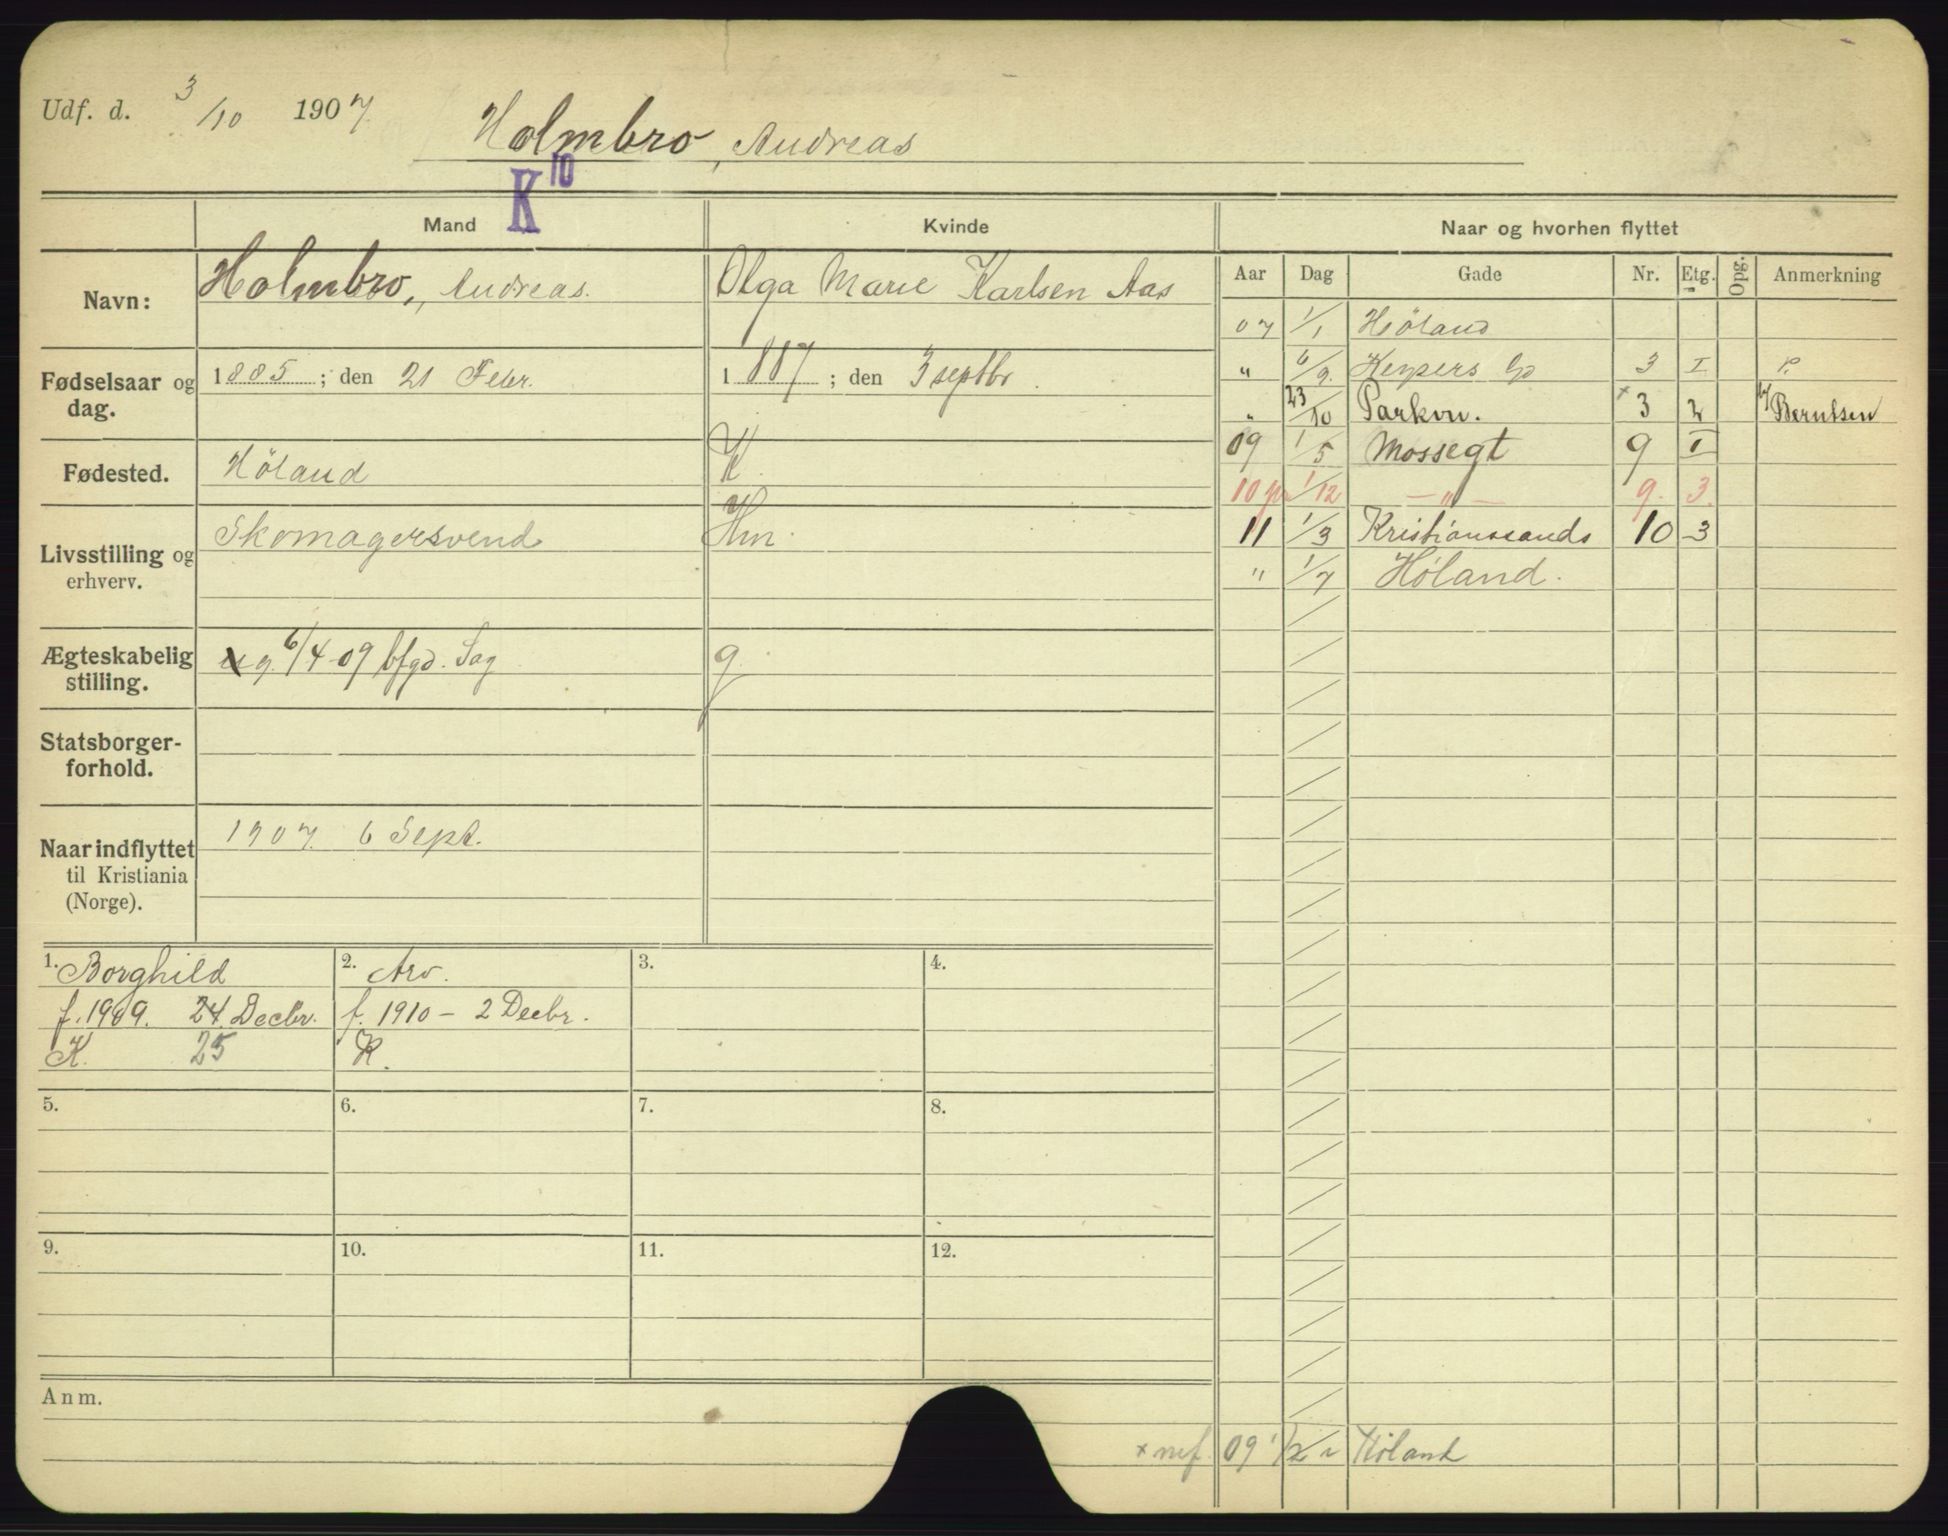 Udf. d. 3/10 1907.
Holmbro, Andreas
K 10
Mand Kvinde Naar og hvorhen flyttet
Aar Dag Gade Nr. Etg. Opg. Anmerkning
Navn: Holmbro, Andreas. Olga Marie Karlsen Aas
07 1/1 Høland
Fødselsaar og dag. 1885; den 21 Febr. 1887; den 3 septbr.
" 6/9 Keysers G 3 I P.
" 23/10 Parkvn. × 3 2 b/ Berntsen
Fødested. Høland K
09 1/5 Mossegt 9 I
10 1/12 — " — 9. 3.
Livsstilling og erhverv. Skomagersvend Hm.
11 1/3 Kristianssands 10 3
" 1/7 Høland.
Ægteskabelig stilling. g. 6/4 09 bfgd. Sag g
Statsborger-
forhold.
Naar indflyttet
til Kristiania
(Norge).
1907. 6 Sept.
1. Borghild
f. 1909. 24 Decbr.
K. 25
2. Arv.
f. 1910 – 2 Decbr.
K.
3.
4.
5.
6.
7.
8.
9.
10.
11.
12.
Anm.
× mf. 09 1/2 Høland